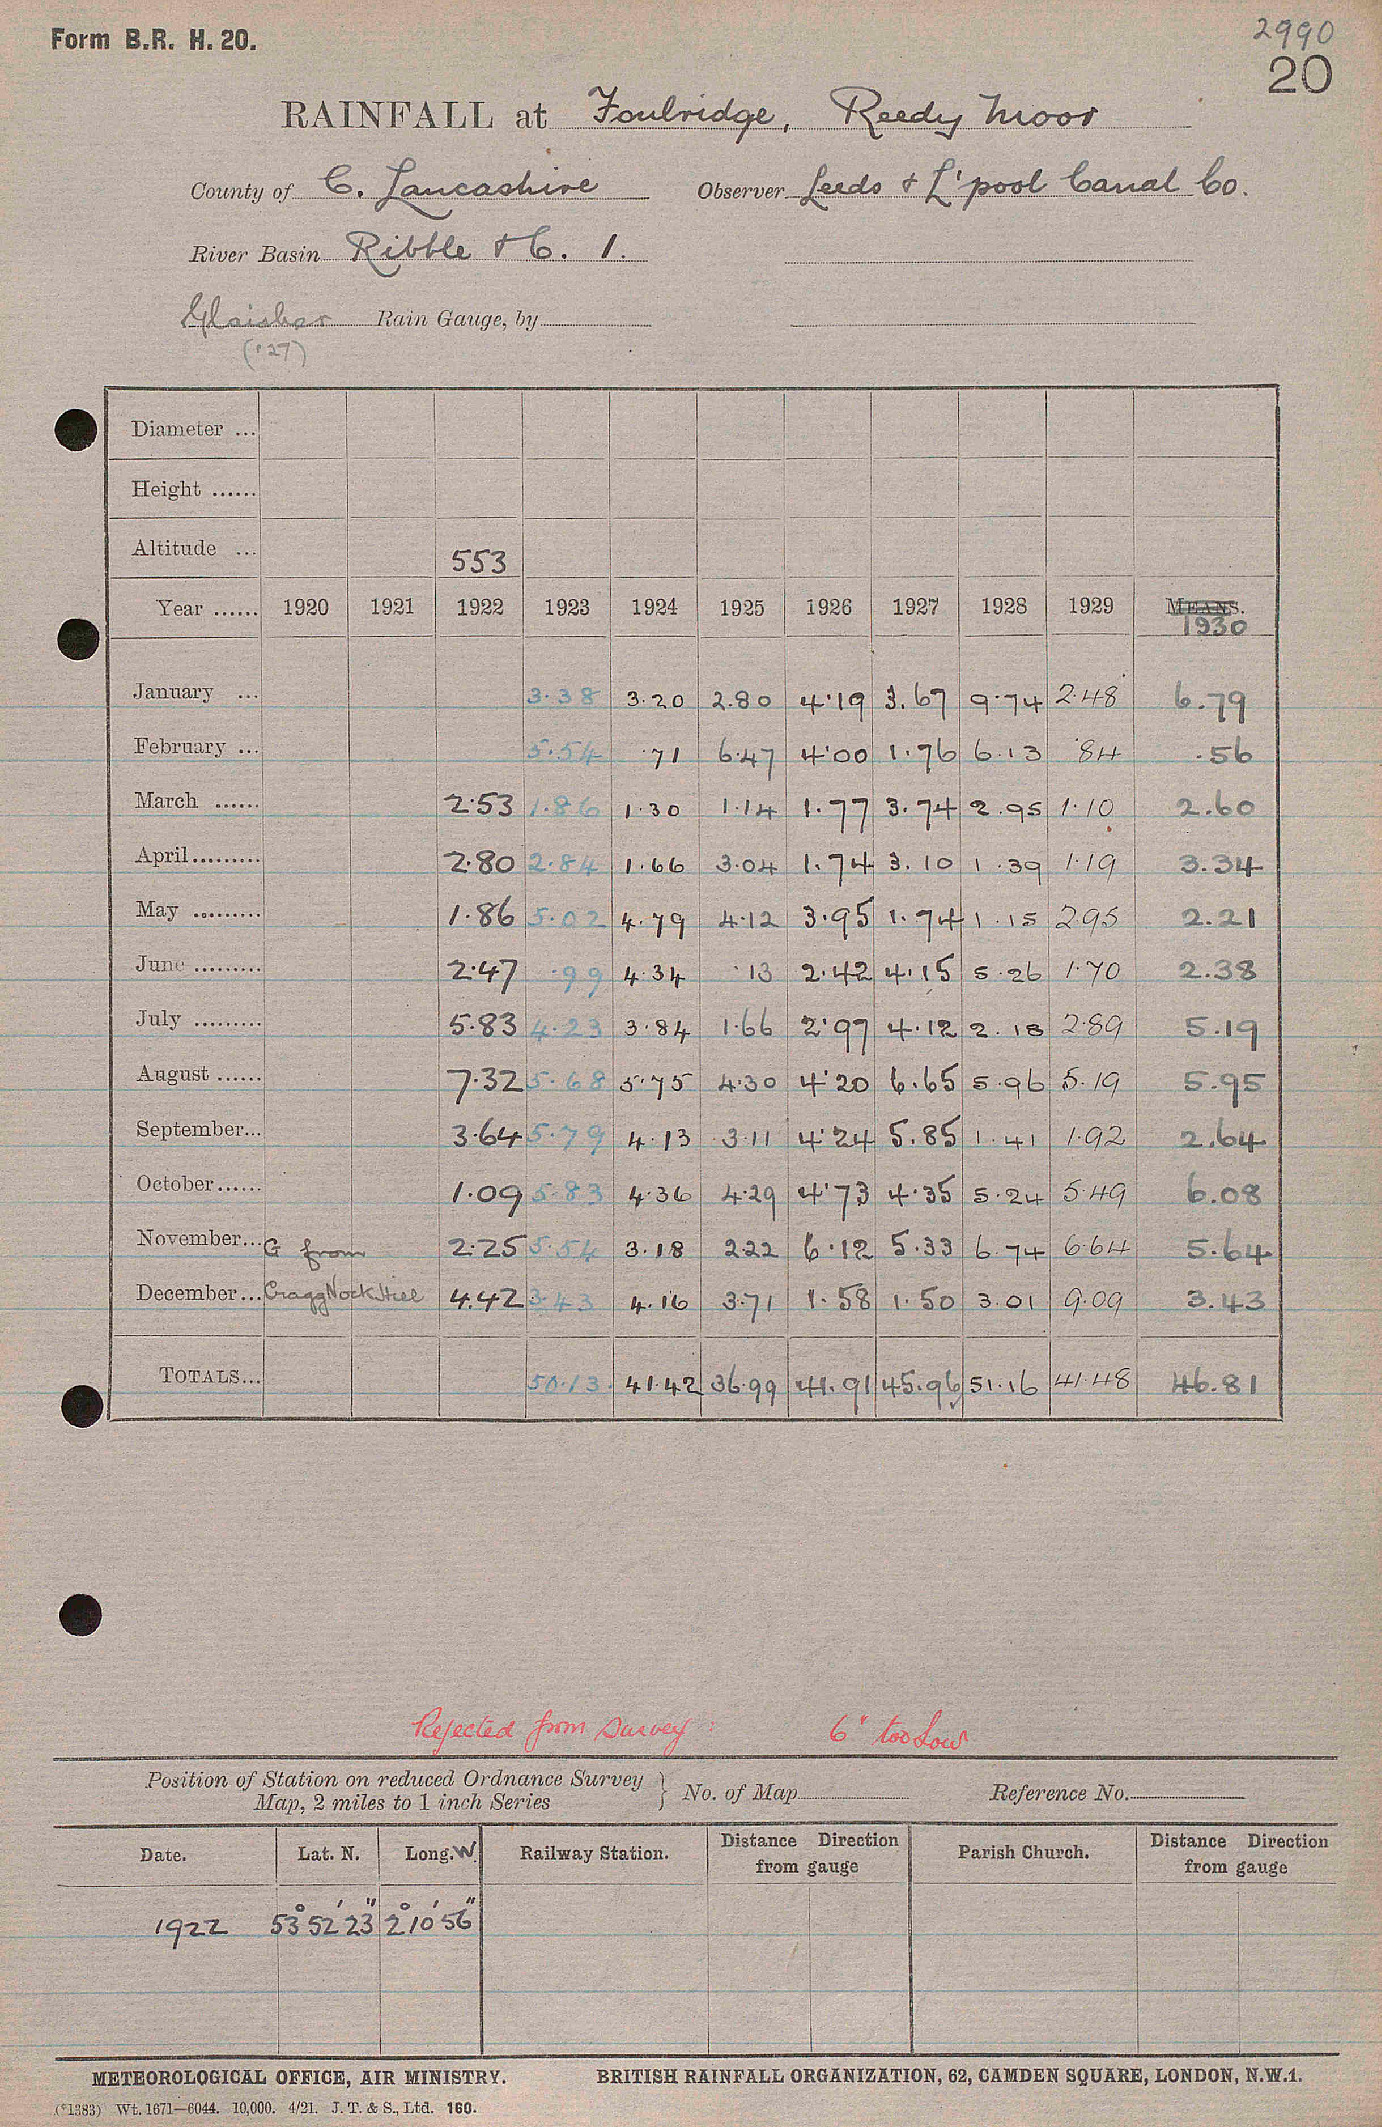 Form B.R. H. 20.
2990
20
RAINFALL at Foulridge, Reedy Moor
County of C. Lancashire Observer Leeds & L'pool Canal Co.
River Basin Ribble & C. 1.
Glaisher Rain Gauge, by
('27)
Diameter ...
Height ......
Altitude ... 553
Year ...... 1920 1921 1922 1923 1924 1925 1926 1927 1928 1929 MEANS. 1930
January ... 3.38 3.20 2.80 4.19 3.67 9.74 2.48 6.79
February ... 5.54 .71 6.47 4.00 1.76 6.13 .84 .56
March ...... 2.53 1.86 1.30 1.14 1.77 3.74 2.95 1.10 2.60
April......... 2.80 2.84 1.66 3.04 1.74 3.10 1.39 1.19 3.34
May ......... 1.86 5.02 4.79 4.12 3.95 1.74 1.15 2.95 2.21
June ......... 2.47 .99 4.34 .13 2.42 4.15 5.26 1.70 2.38
July ......... 5.83 4.23 3.84 1.66 2.97 4.12 2.18 2.89 5.19
August ...... 7.32 5.68 5.75 4.30 4.20 6.65 5.96 5.19 5.95
September... 3.64 5.79 4.13 3.11 4.24 5.85 1.41 1.92 2.64
October...... 1.09 5.83 4.36 4.29 4.73 4.35 5.24 5.49 6.08
November... G from 2.25 5.54 3.18 2.22 6.12 5.33 6.74 6.64 5.64
December... Cragg Nock Hill 4.42 3.43 4.16 3.71 1.58 1.50 3.01 9.09 3.43
TOTALS... 50.13 41.42 36.99 41.91 45.96 51.16 41.48 46.81
Rejected from survey : 6" too low
Position of Station on reduced Ordnance Survey
Map, 2 miles to 1 inch Series } No. of Map Reference No.
Date. Lat. N. Long. W. Railway Station. Distance Direction from gauge Parish Church. Distance Direction from gauge
1922 53° 52' 23" 2° 10' 56"
METEOROLOGICAL OFFICE, AIR MINISTRY. BRITISH RAINFALL ORGANIZATION, 62, CAMDEN SQUARE, LONDON, N.W.1.
(*1383) Wt. 1671—6044. 10,000. 4/21. J. T. & S., Ltd. 160.